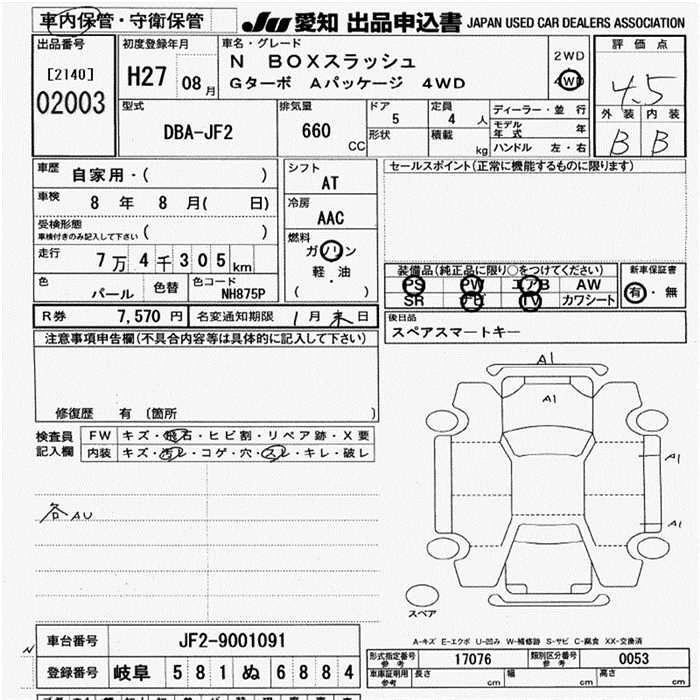 車内保管・守衛保管
JU 愛知 出品申込書 JAPAN USED CAR DEALERS ASSOCIATION
出品番号
[2140]
02003
初度登録年月
H27 08月
車名・グレード
N BOXスラッシュ
Gターボ Aパッケージ 4WD
2WD
4WD
評価点
4.5
外装 内装
B B
型式
DBA-JF2
排気量
660
CC
ドア
5
形状
定員
4 人
積載
kg
ディーラー・並行
モデル年式 年
ハンドル 左・右
車歴
自家用・( )
車検
8 年 8 月( 日)
受検形態
車検付きのみ記入して下さい ( )
走行
7万4千305km
色
パール
色替
色コード
NH875P
シフト
AT
冷房
AAC
燃料
ガソリン
軽・油
( )
セールスポイント(正常に機能するものに限ります)
装備品(純正品に限り○をつけてください)
PS PW エアB AW
SR ナビ TV カワシート
新車保証書
有・無
R券 7,570 円
名変通知期限 1月末日
後日品
スペアスマートキー
注意事項申告欄(不具合内容等は具体的に記入して下さい)
修復歴 有 〔箇所 〕
検査員記入欄
FW キズ・飛石・ヒビ割・リペア跡・X要
内装 キズ・汚レ・コゲ・穴・スレ・キレ・破レ
各AU
A1
A1
A1
A1
スペア
A-キズ E-エクボ U-凹み W-補修跡 S-サビ C-腐食 XX-交換済
車台番号 JF2-9001091
登録番号 岐阜 581 ぬ 6884
型式指定番号 参考 17076
類別区分番号 参考 0053
車庫証明用 参考 長さ cm 幅 cm 高さ cm